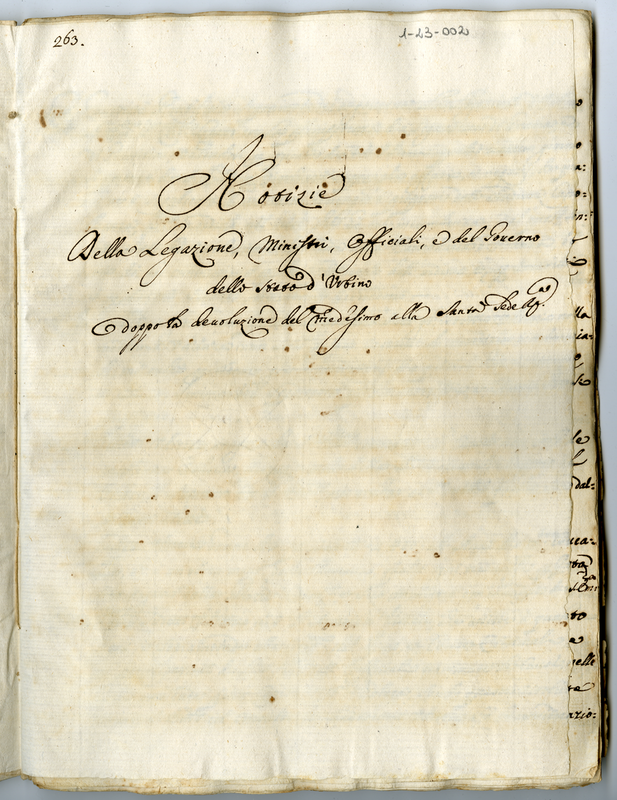 263.
1-23-002
Notizie
Della Legazione, Ministri, Officiali, e del Governo
dello Stato d' Urbino
doppo la devoluzione del medesimo alla Santa Sede Ap.ca
lla
ia:
se
le
dal:
ca:
to
e
elle
te
zio: